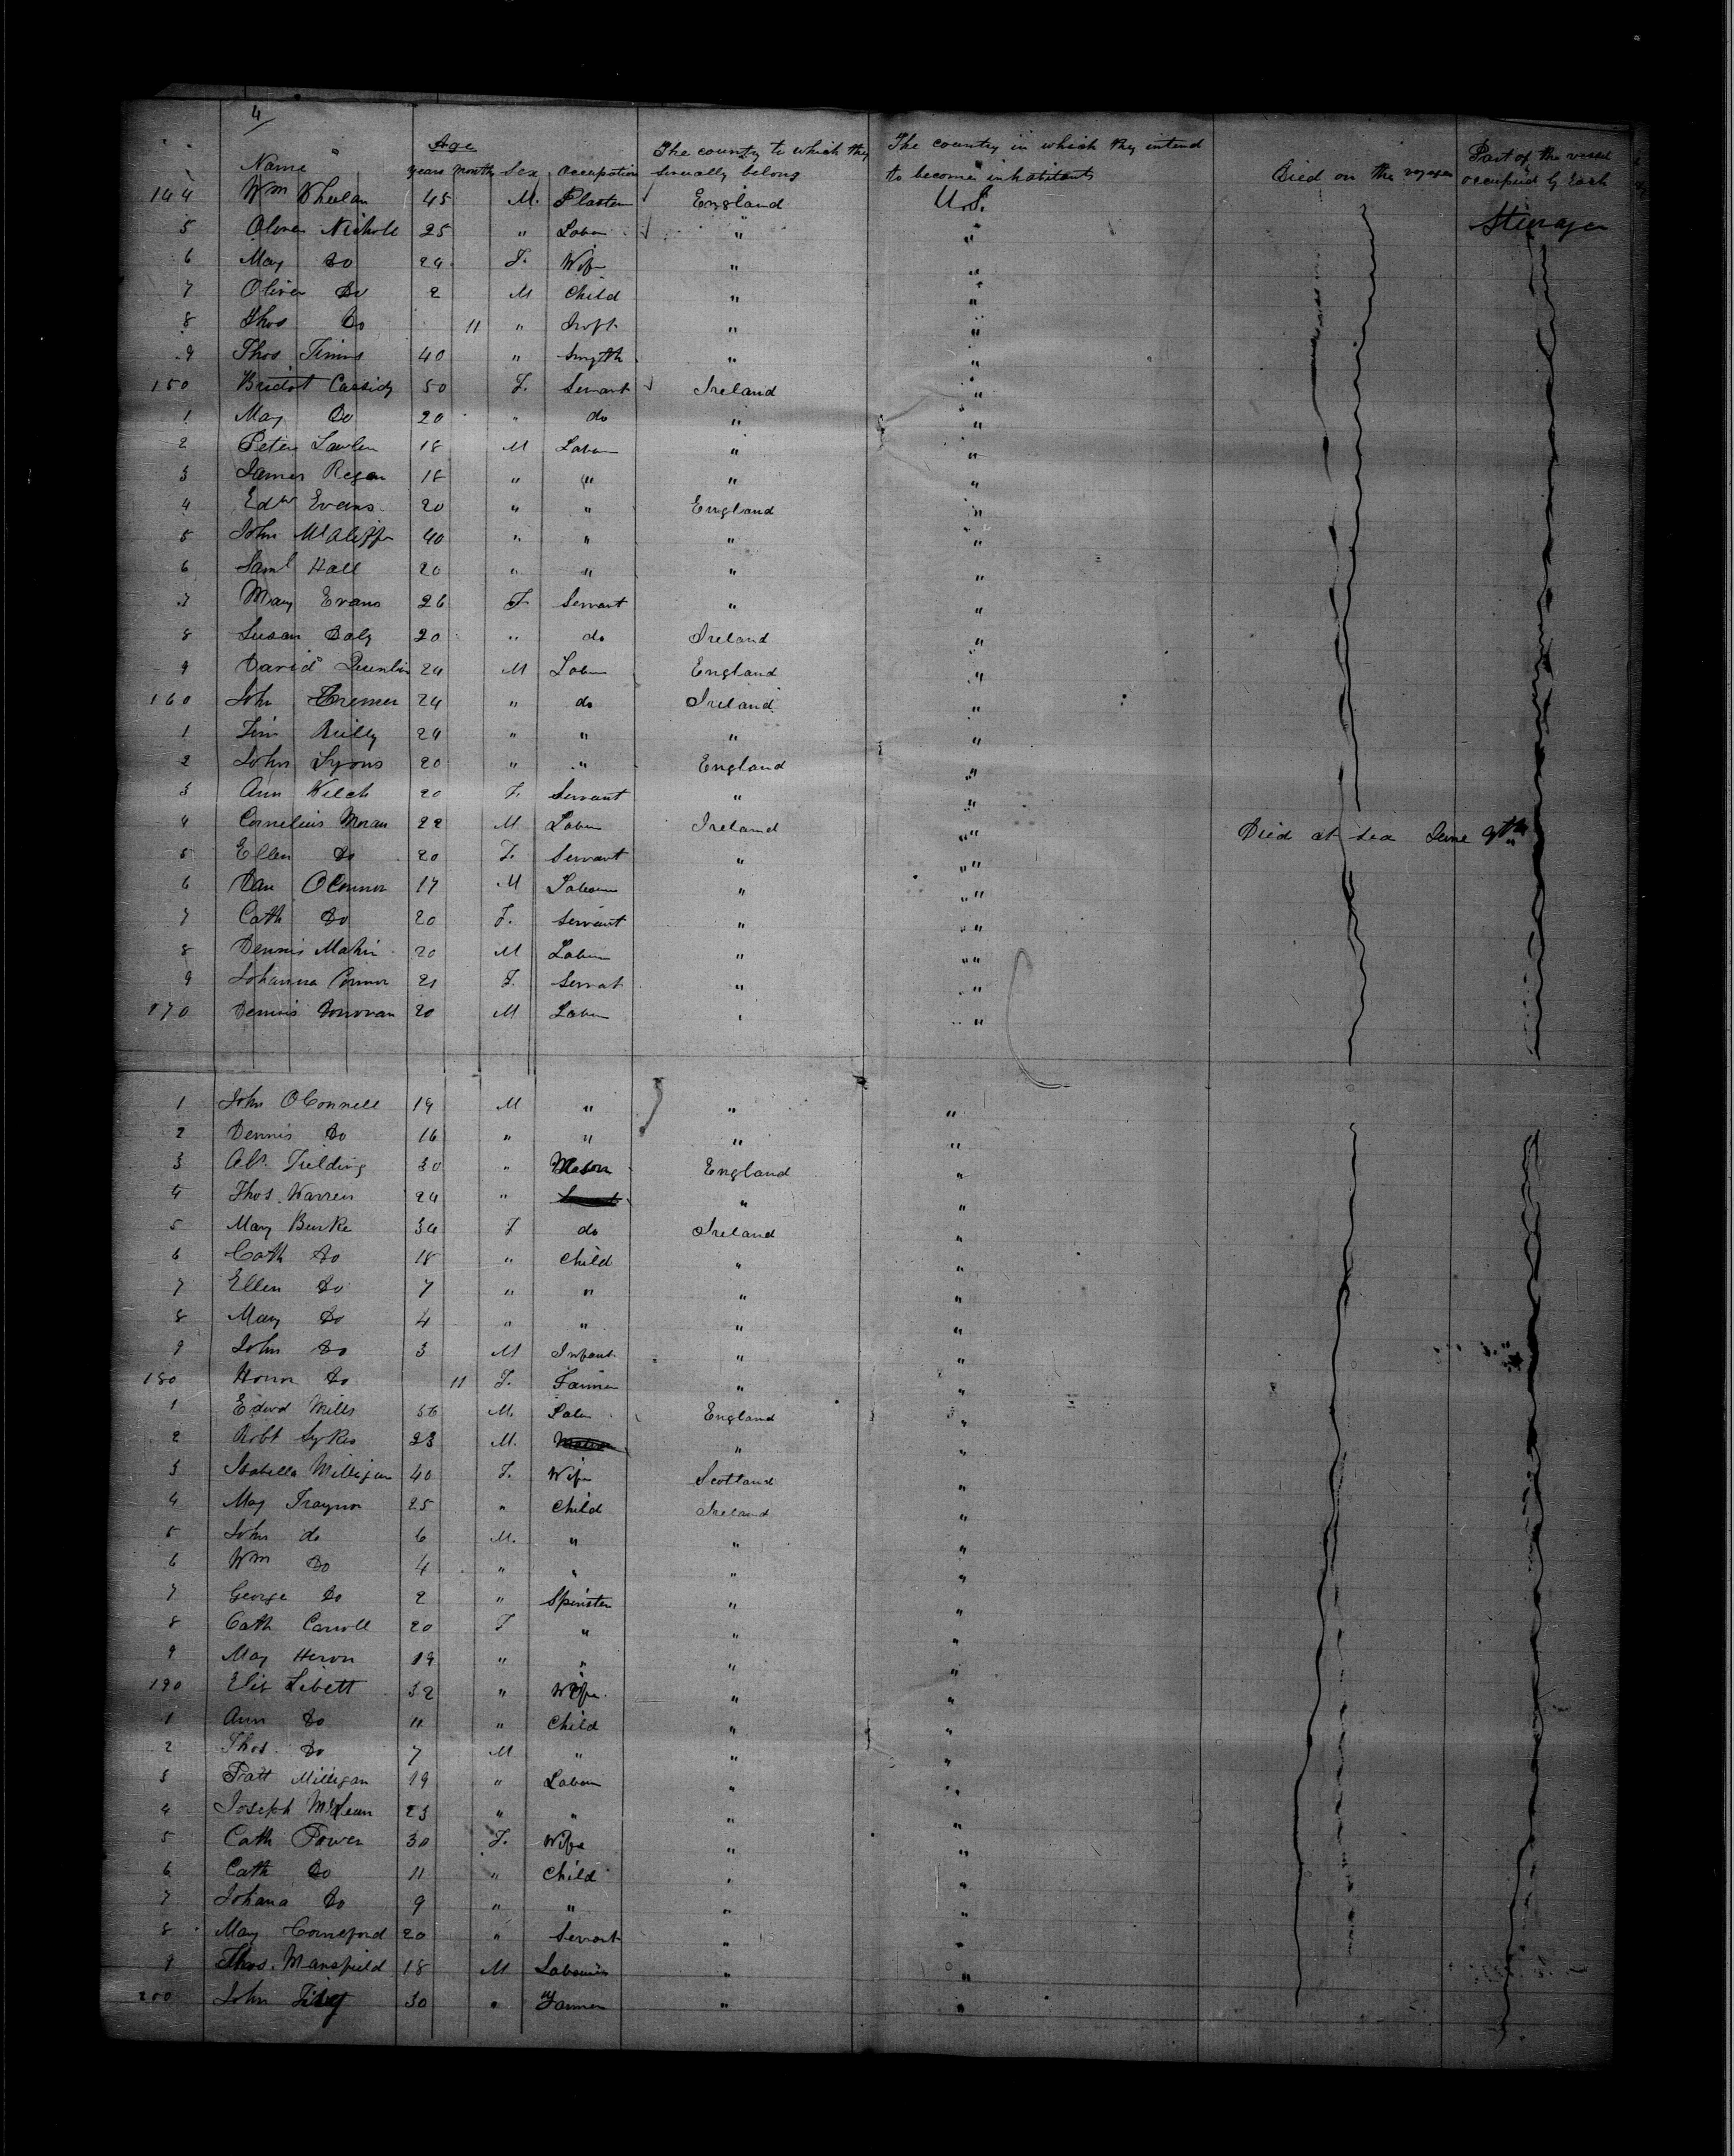 4
Age
Name years months Sex Occupation The country to which they severally belong The country in which they intend to become inhabitants Died on the voyage Part of the vessel occupied by Each
144 Wm Whelan 45 M. England U.S.
5 Oliver Nicholl 25 " Labor " " Steerage
6 May Do 24 F. Wife " "
7 Oliver Do 2 M Child " "
8 Thos Do 11 " Inft " "
9 Thos Timms 40 " Smyth " "
150 Bridgt Cassidy 50 F. Servant Ireland "
1 May Do 20 " do " "
2 Peter Lawlor 18 M Labor " "
3 James Regan 18 " " " "
4 Edw Evans 20 " " England "
5 John 40 " " " "
6 Saml Hall 20 " " " "
7 Mary Evans 26 F Servant " "
8 Susan Daly 20 " do Ireland "
9 David Quinlin 24 M Labor England "
160 John 24 " do Ireland "
1 Tim Reilly 24 " " " "
2 John Lyons 20 " " England "
3 Ann Welch 20 F. Servant " "
4 Cornelius Moran 22 M Labor Ireland " Died at sea June 9th
5 Ellen Do 20 F. Servant " "
6 Dan OConnor 17 M Labour " "
7 Cath Do 20 F. Servant " "
8 Dennis 20 M Labor " "
9 Johanna Connor 21 F. Servat " "
170 Dennis Donovan 20 M Labor " "
1 John OConnell 19 M " " "
2 Dennis Do 16 " " " "
3 Fielding 30 " Mason England "
4 Thos. Warren 24 " " "
5 Mary Burke 34 F do Ireland "
6 Cath Do 18 " Child " "
7 Ellen Do 7 " " " "
8 Mary Do 4 " " " "
9 John Do 3 M Infant " "
180 Honor Do 11 F. Farmer " "
1 Edwd Mills 36 M. Labor England "
2 Robt Sykes 23 M. " "
3 Isabella Milligan 40 F. Wife Scotland "
4 May Traynor 25 " Child Ireland "
5 John do 6 M. " " "
6 Wm Do 4 " " " "
7 George Do 2 " Spinster " "
8 Cath Carroll 20 F " " "
9 May Heron 19 " " " "
190 Eliz Libett 32 " Wife " "
1 Ann Do 11 " Child " "
2 Thos. Do 7 M " " "
3 Patt Milligan 19 " Labour " "
4 Joseph McLean 23 " " " "
5 Cath Power 30 F. Wife " "
6 Cath Do 11 " Child " "
7 Johana Do 9 " " " "
8 May 20 " Servant " "
9 Thos. Mansfield 18 M Labourer " "
200 John 30 " Farmer " "